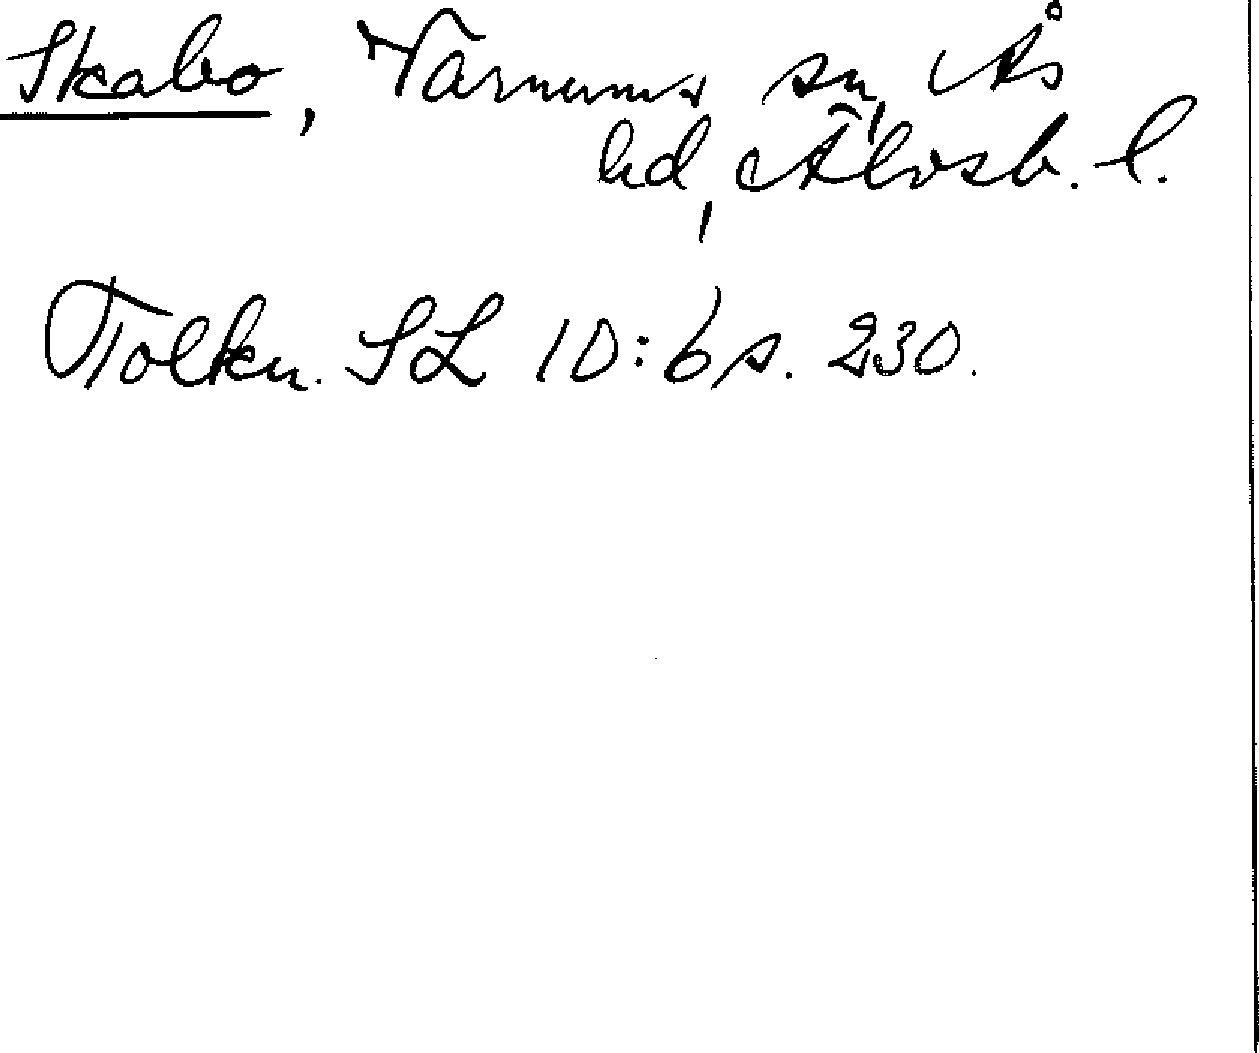 Skabo, Varnums sn, Ås
hd, Älvsb. l.
Tolkn. SL 10:6 s. 230.